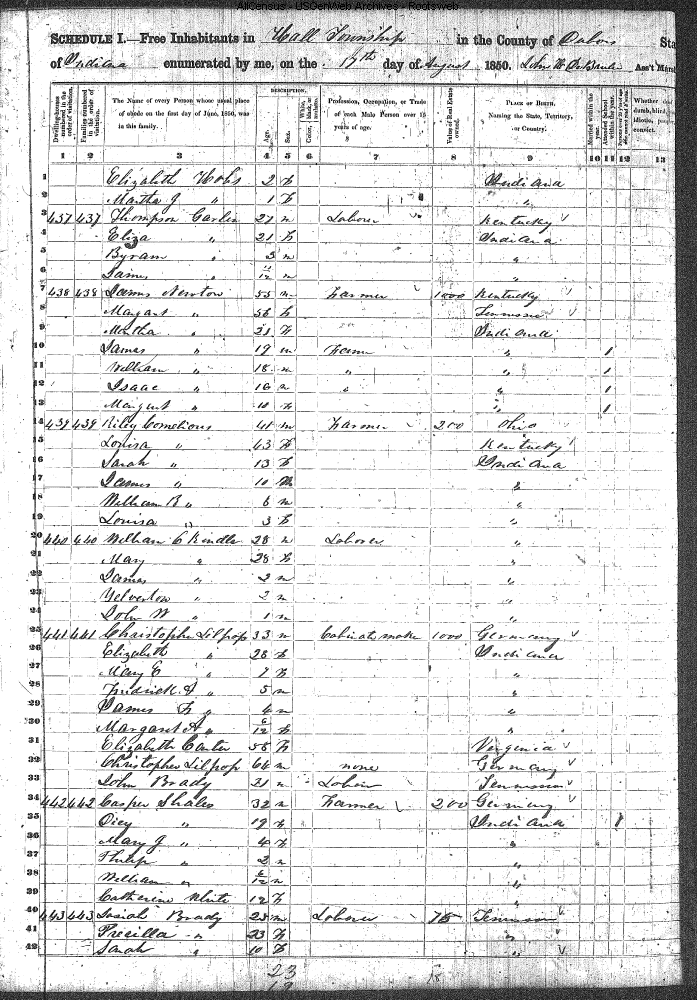 AllCensus - USGenWeb Archives - Rootsweb
SCHEDULE I.—Free Inhabitants in Hall Township in the County of Sta
of Indiana enumerated by me, on the 17th day of August 1850. Ass't Mars
Dwelling-houses numbered in the order of visitation.
Families numbered in the order of visitation.
The Name of every Person whose usual place of abode on the first day of June, 1850, was in this family.
DESCRIPTION.
Age.
Sex.
Color, White, black, or mulatto.
Profession, Occupation, or Trade of each Male Person over 15 years of age.
Value of Real Estate owned.
PLACE OF BIRTH. Naming the State, Territory, or Country.
Married within the year.
Attended School within the year.
Whether dumb, blind, idiotic, convict.
1 2 3 4 5 6 7 8 9 10 11 12 13
1 Elizabeth Hobs 2 f Indiana
2 Martha J " 1 f "
3 437 437 Thompson Garlin 27 m Laborer Kentucky
4 Eliza " 21 f Indiana
5 Byram " 3 m "
6 James " 12 m "
7 438 438 James Newton 55 m Farmer 1000 Kentucky
8 Margaret " 56 f Tennessee
9 Martha " 21 f Indiana
10 James " 19 m Farmer " 1
11 William " 18 m " " 1
12 Isaac " 16 m " " 1
13 Margaret " 10 f " 1
14 439 439 Riley 41 m Farmer 200 Ohio
15 Louisa " 43 f Kentucky
16 Sarah " 13 f Indiana
17 James " 10 m "
18 William B " 6 m "
19 Louisa " 3 f "
20 440 440 William C Kindle 28 m Laborer "
21 Mary " 28 f "
22 James " 2 m "
23 Yelverton " 2 m "
24 John W " 1 m "
25 441 441 Christopher Lilpop 33 m Cabinet make 1000 Germany
26 Elizabeth " 28 f Indiana
27 Mary E " 7 f "
28 Fredrick A " 5 m "
29 James F " 4 m "
30 Margaret A " 6/12 f "
31 Elizabeth Carter 58 f Virginia
32 Christopher Lilpop 64 m none Germany
33 John Brady 21 m Labour Tennessee
34 442 442 Casper Shales 32 m Farmer 200 Germany
35 Dicy " 19 f Indiana 1
36 Mary J " 4 f "
37 Philip " 2 m "
38 William " 6/12 m "
39 Catherine White 12 f "
40 443 443 Josiah Brady 25 m Laborer 75 Tennessee
41 Precilla " 23 f "
42 Sarah " 10 f "
23
19